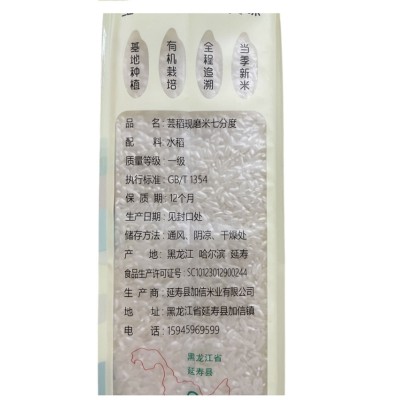 基地种植 有机栽培 全程追溯 当季新米
品 名：芸稻现磨米七分度
配 料：水稻
质量等级：一级
执行标准：GB/T 1354
保 质 期：12个月
生产日期：见封口处
储存方法：通风、阴凉、干燥处
产 地：黑龙江 哈尔滨 延寿
食品生产许可证号：SC10123012900244
生 产 商：延寿县加信米业有限公司
地 址：黑龙江省延寿县加信镇
电 话：15945969599
黑龙江省
延寿县